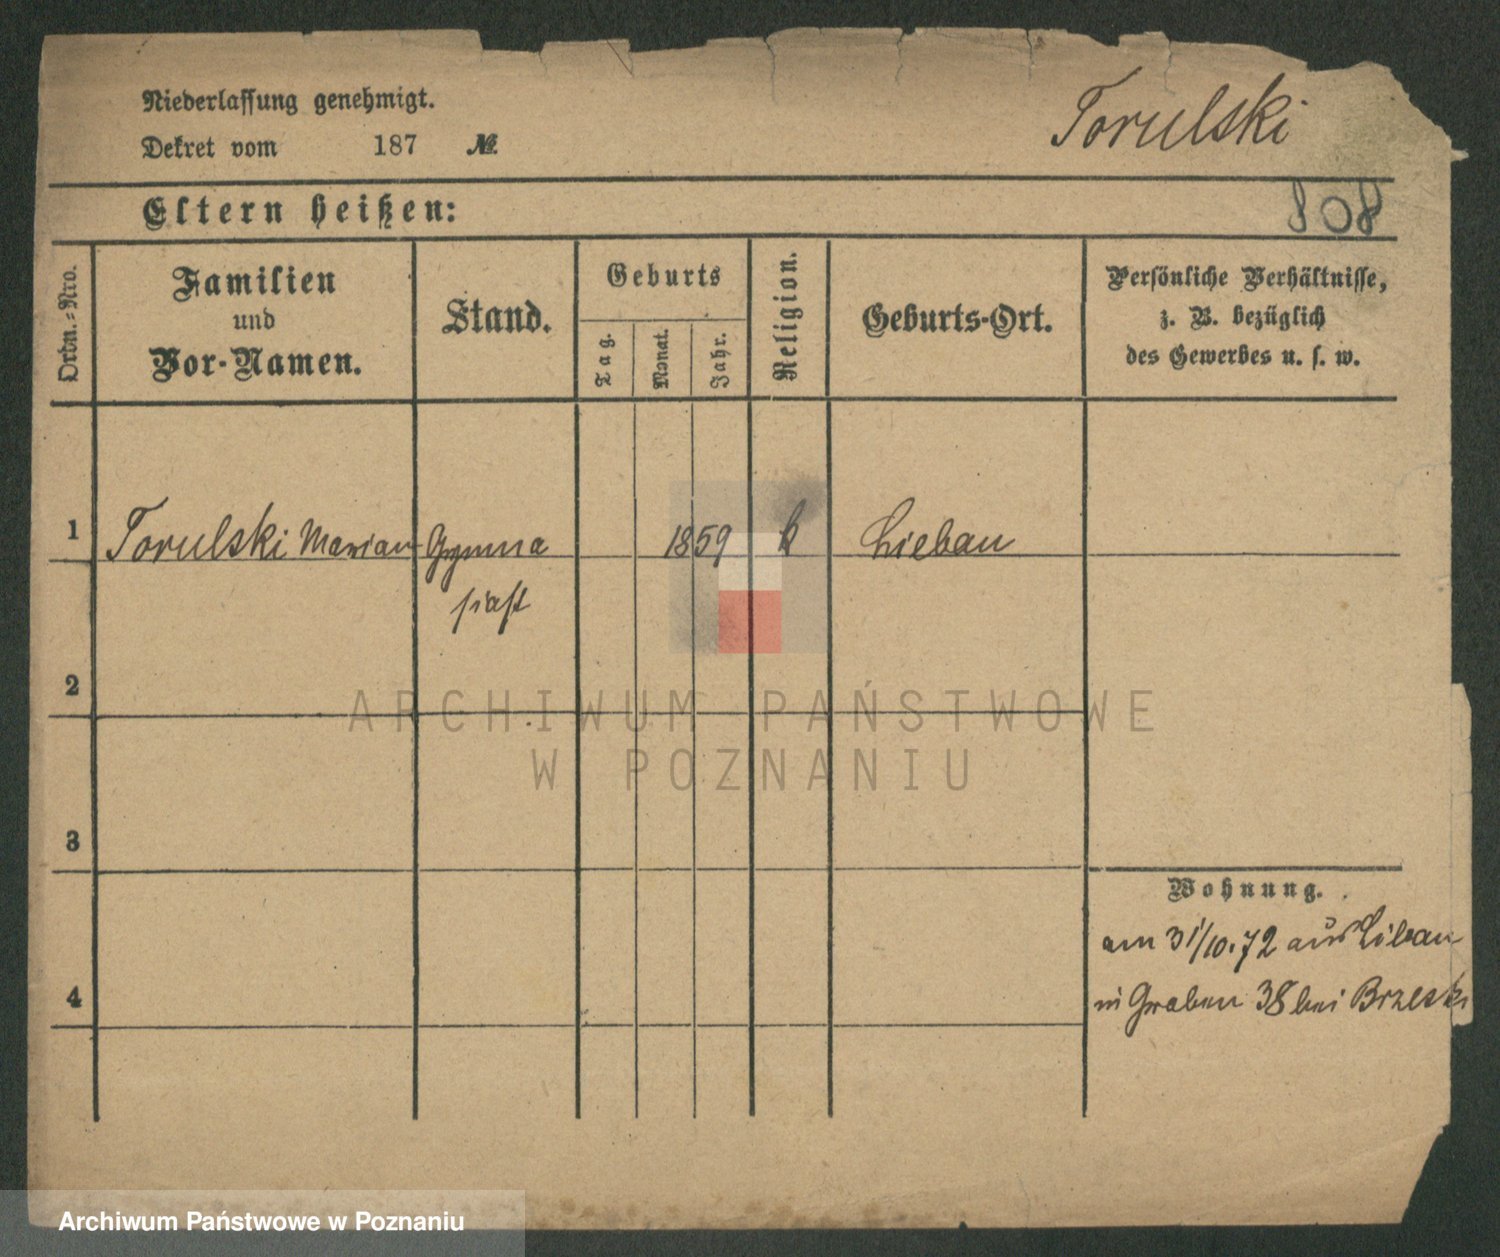 Niederlassung genehmigt.
Torulski
Dekret vom 187 №
Eltern heißen:
808
Ordn.-Nro.
Familien
und
Vor-Namen.
Stand.
Geburts
Tag.
Monat.
Jahr.
Religion.
Geburts-Ort.
Persönliche Verhältnisse,
z. B. bezüglich
des Gewerbes u. s. w.
1 Torulski Marian Gymna 1859 k Liebau
siast
2
ARCHIWUM PAŃSTWOWE
W POZNANIU
3
Wohnung.
am 31/10.72 aus Libau
in Graben 38 bei Brzeski
4
Archiwum Państwowe w Poznaniu